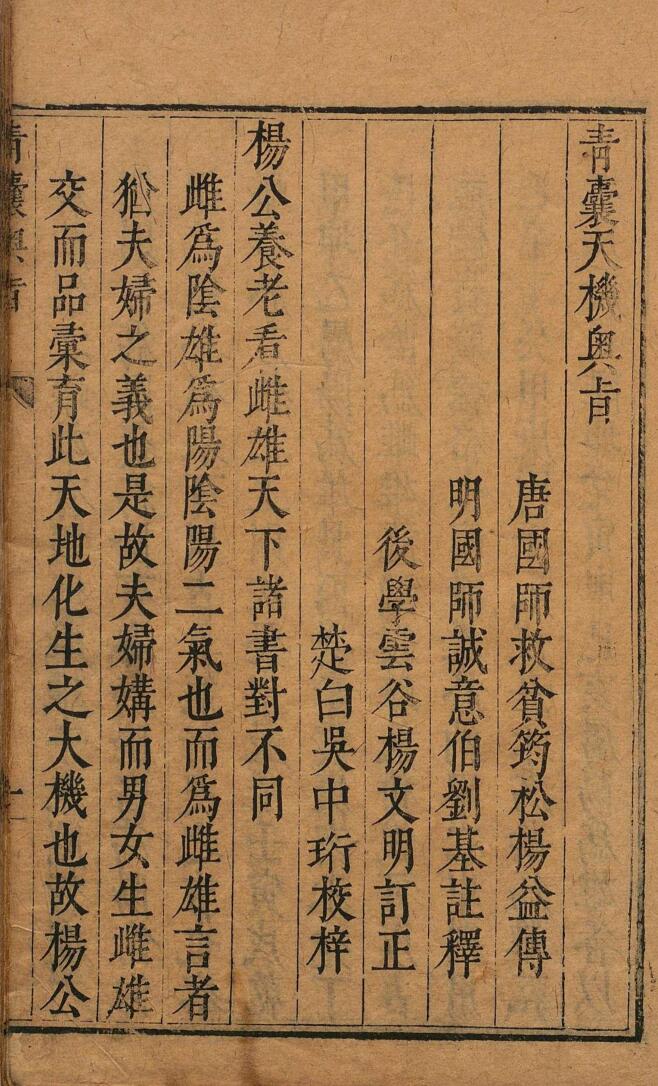 青囊天機奧旨
唐國師救貧筠松楊益傳
明國師誠意伯劉基註釋
後學雲谷楊文明訂正
楚白吳中珩校梓
楊公養老看雌雄天下諸書對不同
雌為陰雄為陽陰陽二氣也而為雌雄言者
猶夫婦之義也是故夫婦媾而男女生雌雄
交而品彙育此天地化生之大機也故楊公
青囊奧旨
一